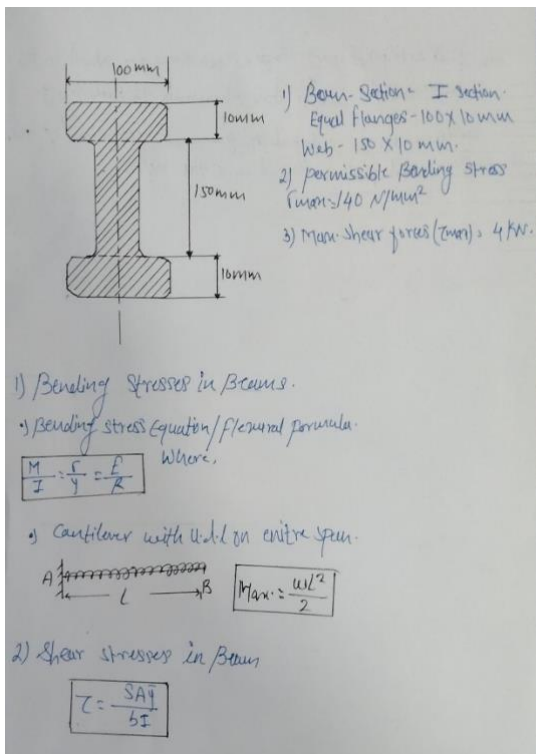 100mm
10mm
150mm
10mm
1) Beam-Section = I section.
Equal flanges - 100 x 10 mm
Web - 150 X 10 mm.
2) permissible Bending stress
σmax = 140 N/mm²
3) Max. Shear forces (τmax) = 4 KN.
1) Bending Stresses in Beams.
•) Bending stress Equation/flexural formula.
Where,
M/I = σ/y = E/R
•) Cantilever with U.d.l on enitre span.
A
B
L
Max. = wL²/2
2) Shear stresses in Beam
τ = SAȳ/bI